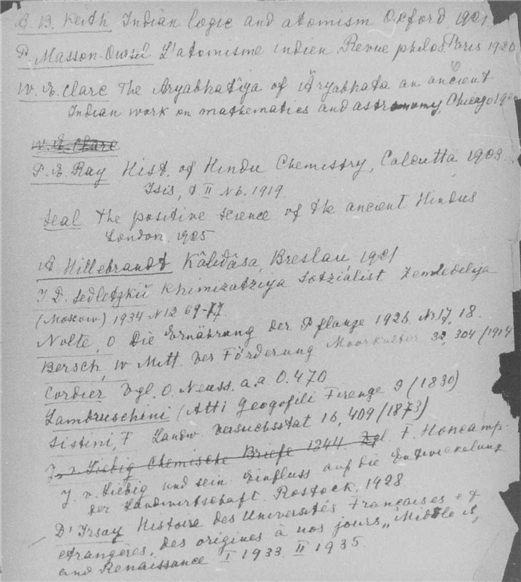 A. B. Keith Indian logic and atomism Oxford 1921
P. Masson-Oursel L'atomisme indien Revue philos Paris 1920
W. E. Clarc The Aryabhatîya of Āryabhata an ancient
Indian work on mathematics and astronomy, Chicago
W. E. Clarc
P. E. Ray Hist. of Hindu Chemistry, Calcutta, 1903
Isis, II No. 1919.
Seal The positive science of the ancient Hindus
London, 1925
A Hillebrandt Kâlidâsa, Breslau 1921
J. D. Sedletzkii Khimizatziya Sotzialist Zemledelya
(Moscow) 1934 N12 69-77
Nolte, O Die Ernährung der Pflanze 1926, Nr 17, 18.
Bersch, W Mitt. Ver Förderung Moorkultur 32, 304 (1914
Cordier Vgl. O. Neuss. a.a O. 470
Lambruschini (Atti Geogofili Firenze 9 (1830)
Sistini, F Landw. Versuchsstat 16, 409 (1873)
J. v. Liebig Chemische Briefe 1844. Vgl. F. Honcamp.
J v. Liebig und sein Einfluss auf die Entwickelung
der Landwirtschaft Rostock, 1928
D'Irsay Histoire des Universités Françaises et
etrangères, des origines à nos jours, "Middle
and Renaissance I 1933, II 1935.